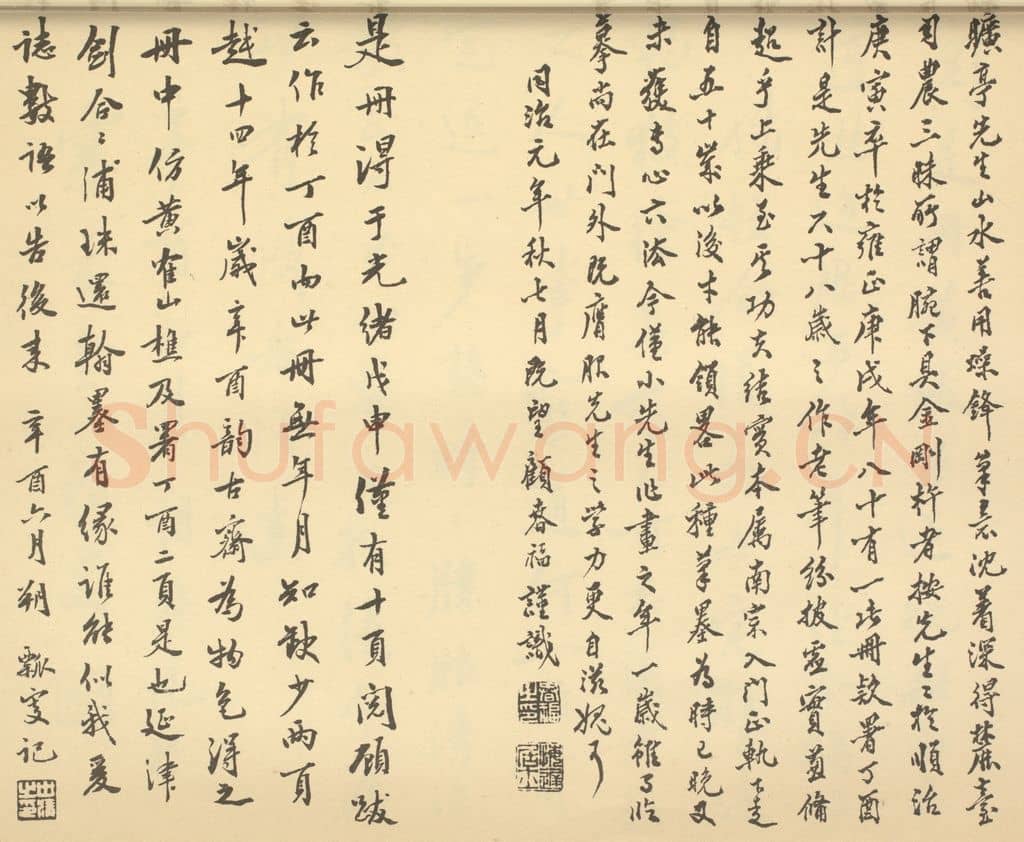 曠亭先生山水善用燥鋒筆意沈着深得麓臺
司農三昧所謂腕下具金剛杵者按先生〻於順治
庚寅卒於雍正庚戌年八十有一此冊款署丁酉
計是先生六十八歲之作老筆紛披虛實兼備
超乎上乘至其功夫結實本屬南宗入門正軌下走
自五十歲以後才能領畧此種筆墨為時已晚又
未獲專心六法今僅小先生作畫之年一歲雖可臨
摹尚在門外既膺服先生之學力更自滋媿耳
同治元年秋七月既望顧春福謹識
是冊得于光緒戊申僅有十頁閱顧跋
云作於丁酉而此冊無年月知缺少兩頁
越十四年歲辛酉韵古齋為物色得之
冊中仿黃雀山樵及署丁酉二頁是也延津
劍合〻浦珠還翰墨有緣誰能似我爰
誌數語以告後來 辛酉六月朔 瓢叟記
Shufawang.CN